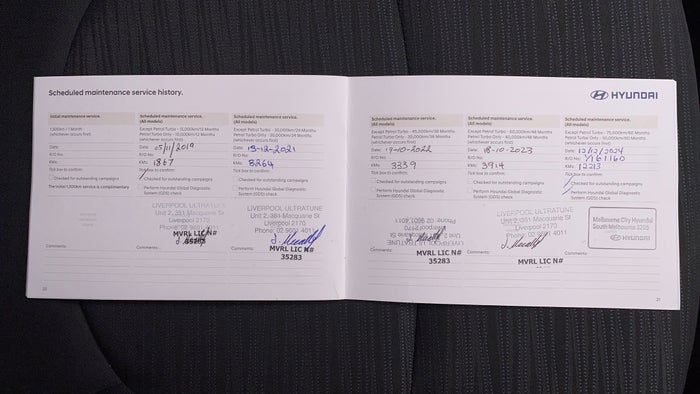 Scheduled maintenance service history.
Initial maintenance service.
1,500km / 1 Month
(whichever occurs first)
Date:
R/O No:
KMs:
Tick box to confirm:
Checked for outstanding campaigns
The initial 1,500km service is complimentary
Comments:
Scheduled maintenance service.
(All models)
Except Petrol Turbo - 15,000km/12 Months
Petrol Turbo Only - 10,000km/12 Months
(whichever occurs first)
Date: 05/11/2019
R/O No:
KMs: 1867
Tick box to confirm:
Checked for outstanding campaigns
Perform Hyundai Global Diagnostic
System (GDS) check
LIVERPOOL ULTRATUNE
Unit 2, 361 Macquarie St
Liverpool 2170
Phone: 02 9601 4011
MVRL LIC N#
35283
Comments:
Scheduled maintenance service.
(All models)
Except Petrol Turbo - 30,000km/24 Months
Petrol Turbo Only - 20,000km/24 Months
(whichever occurs first)
Date: 13-12-2021
R/O No:
KMs: 8264
Tick box to confirm:
Checked for outstanding campaigns
Perform Hyundai Global Diagnostic
System (GDS) check
LIVERPOOL ULTRATUNE
Unit 2, 361 Macquarie St
Liverpool 2170
Phone: 02 9601 4011
MVRL LIC N#
35283
Comments:
20
HYUNDAI
Scheduled maintenance service.
(All models)
Except Petrol Turbo - 45,000km/36 Months
Petrol Turbo Only - 30,000km/36 Months
(whichever occurs first)
Date: 19-10-2022
R/O No:
KMs: 3339
Tick box to confirm:
Checked for outstanding campaigns
Perform Hyundai Global Diagnostic
System (GDS) check
LIVERPOOL ULTRATUNE
Unit 2, 361 Macquarie St
Liverpool 2170
Phone: 02 9601 4011
MVRL LIC N#
35283
Comments:
Scheduled maintenance service.
(All models)
Except Petrol Turbo - 60,000km/48 Months
Petrol Turbo Only - 40,000km/48 Months
(whichever occurs first)
Date: 18-10-2023
R/O No:
KMs: 3914
Tick box to confirm:
Checked for outstanding campaigns
Perform Hyundai Global Diagnostic
System (GDS) check
LIVERPOOL ULTRATUNE
Unit 2, 361 Macquarie St
Liverpool 2170
Phone: 02 9601 4011
MVRL LIC N#
Comments:
Scheduled maintenance service.
(All models)
Except Petrol Turbo - 75,000km/60 Months
Petrol Turbo Only - 50,000km/60 Months
(whichever occurs first)
Date: 12/12/2024
R/O No: Y161160
KMs: 12213
Tick box to confirm:
Checked for outstanding campaigns
Perform Hyundai Global Diagnostic
System (GDS) check
Melbourne City Hyundai
South Melbourne 3205
HYUNDAI
Comments:
21